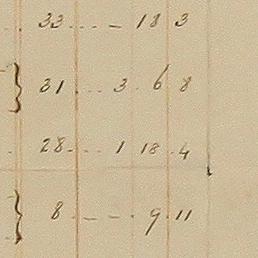 33 .... – 18 3
} 31 ... 3 . 6 8
28 .... 1 18 . 4
} 8 . – – . 9 . 11